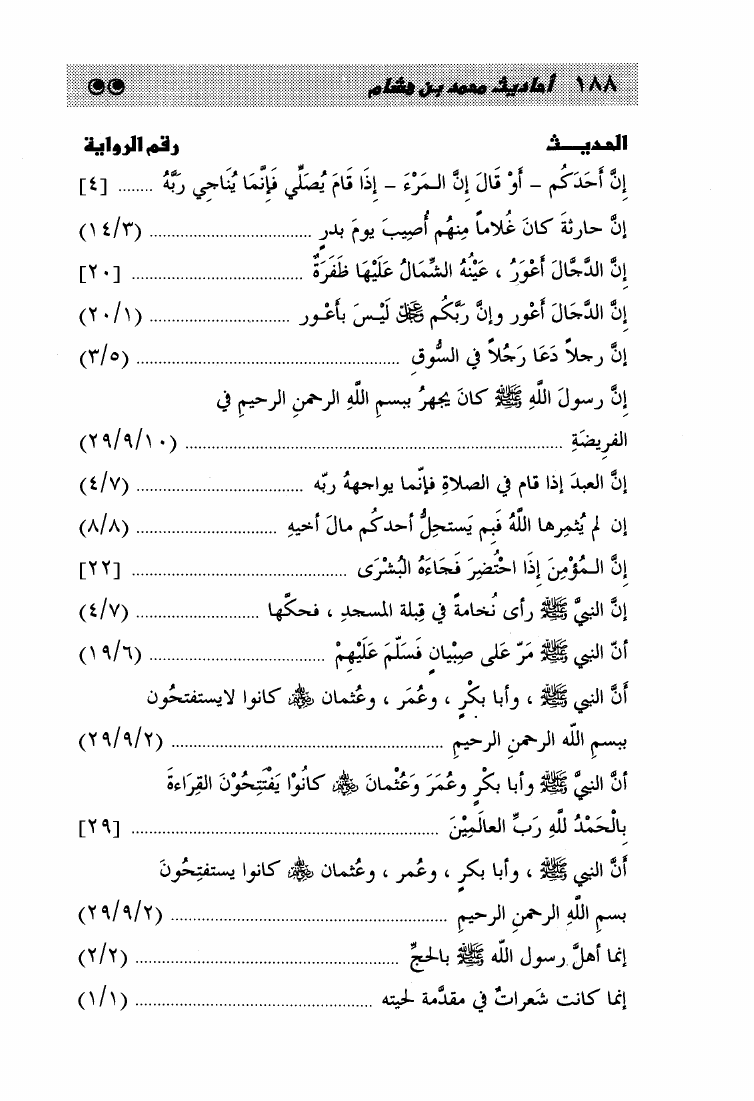 ١٨٨ أحاديث محمد بن هشام
الحديـــث رقم الرواية
إِنَّ أَحَدَكُم – أَوْ قَالَ إِنَّ الـمَرْءَ – إِذَا قَامَ يُصَلِّي فَإِنَّمَا يُنَاجِي رَبَّهُ ........ [٤]
إنَّ حارثةَ كانَ غُلاماً مِنهُم أُصِيبَ يومَ بدرٍ ................................. (١٤/٣)
إِنَّ الدَّجَّالَ أَعْوَرُ ، عَيْنُهُ الشِّمَالُ عَلَيْهَا ظَفَرَةٌ ................................. [٢٠]
إنَّ الدَّجَالَ أعْور وإنَّ رَبَّكُم ﷿ لَيْـسَ بأَعْـور ............................. (٢٠/١)
إنَّ رجلاً دَعَا رَجُلاً في السُّوقِ ..................................................... (٣/٥)
إنَّ رسولَ اللَّهِ ﷺ كانَ يجهرُ ببسمِ اللَّهِ الرحمنِ الرحيمِ في
الفرِيضَةِ ............................................................................ (٢٩/٩/١٠)
إنَّ العبدَ إذا قام في الصلاةِ فإنّما يواجههُ ربّه .................................. (٤/٧)
إن لم يُثمِرها اللَّهُ فَبِم يَستحلُّ أحدكُم مالَ أخيهِ ............................. (٨/٨)
إِنَّ الـمُؤْمِنَ إِذَا احْتُضِرَ فَجَاءَهُ البُشْرَى ........................................... [٢٢]
إنَّ النبيَّ ﷺ رأى نُخامةً في قِبلة المسجدِ ، فحكَّها .......................... (٤/٧)
أنّ النبي ﷺ مَرّ عَلى صِبْيانٍ فَسَلّمَ عَلَيْهِمْ ................................... (١٩/٦)
أَنَّ النبي ﷺ ، وأبا بكْرٍ ، وعُمَر ، وعُثمان ﵃ كانوا لايستفتحُون
ببسمِ اللّه الرحمنِ الرحيمِ ....................................................... (٢٩/٩/٢)
أنَّ النبيَّ ﷺ وأبا بكْرٍ وعُمَرَ وَعُثْمانَ ﵃ كانُوْا يَفْتَتِحُوْنَ القِرَاءةَ
بِالْحَمْدُ للَّهِ رَبِّ العالَمِيْنَ .............................................................. [٢٩]
أَنَّ النبي ﷺ ، وأبا بكرٍ ، وعُمر ، وعثمان ﵃ كانوا يستفتِحُونَ
بسمِ اللَّهِ الرحمنِ الرحيمِ ........................................................ (٢٩/٩/٢)
إنما أهلَّ رسول اللّه ﷺ بالحجِّ ..................................................... (٢/٢)
إنما كانت شَعراتٌ في مقدَّمة لحيته ................................................ (١/١)